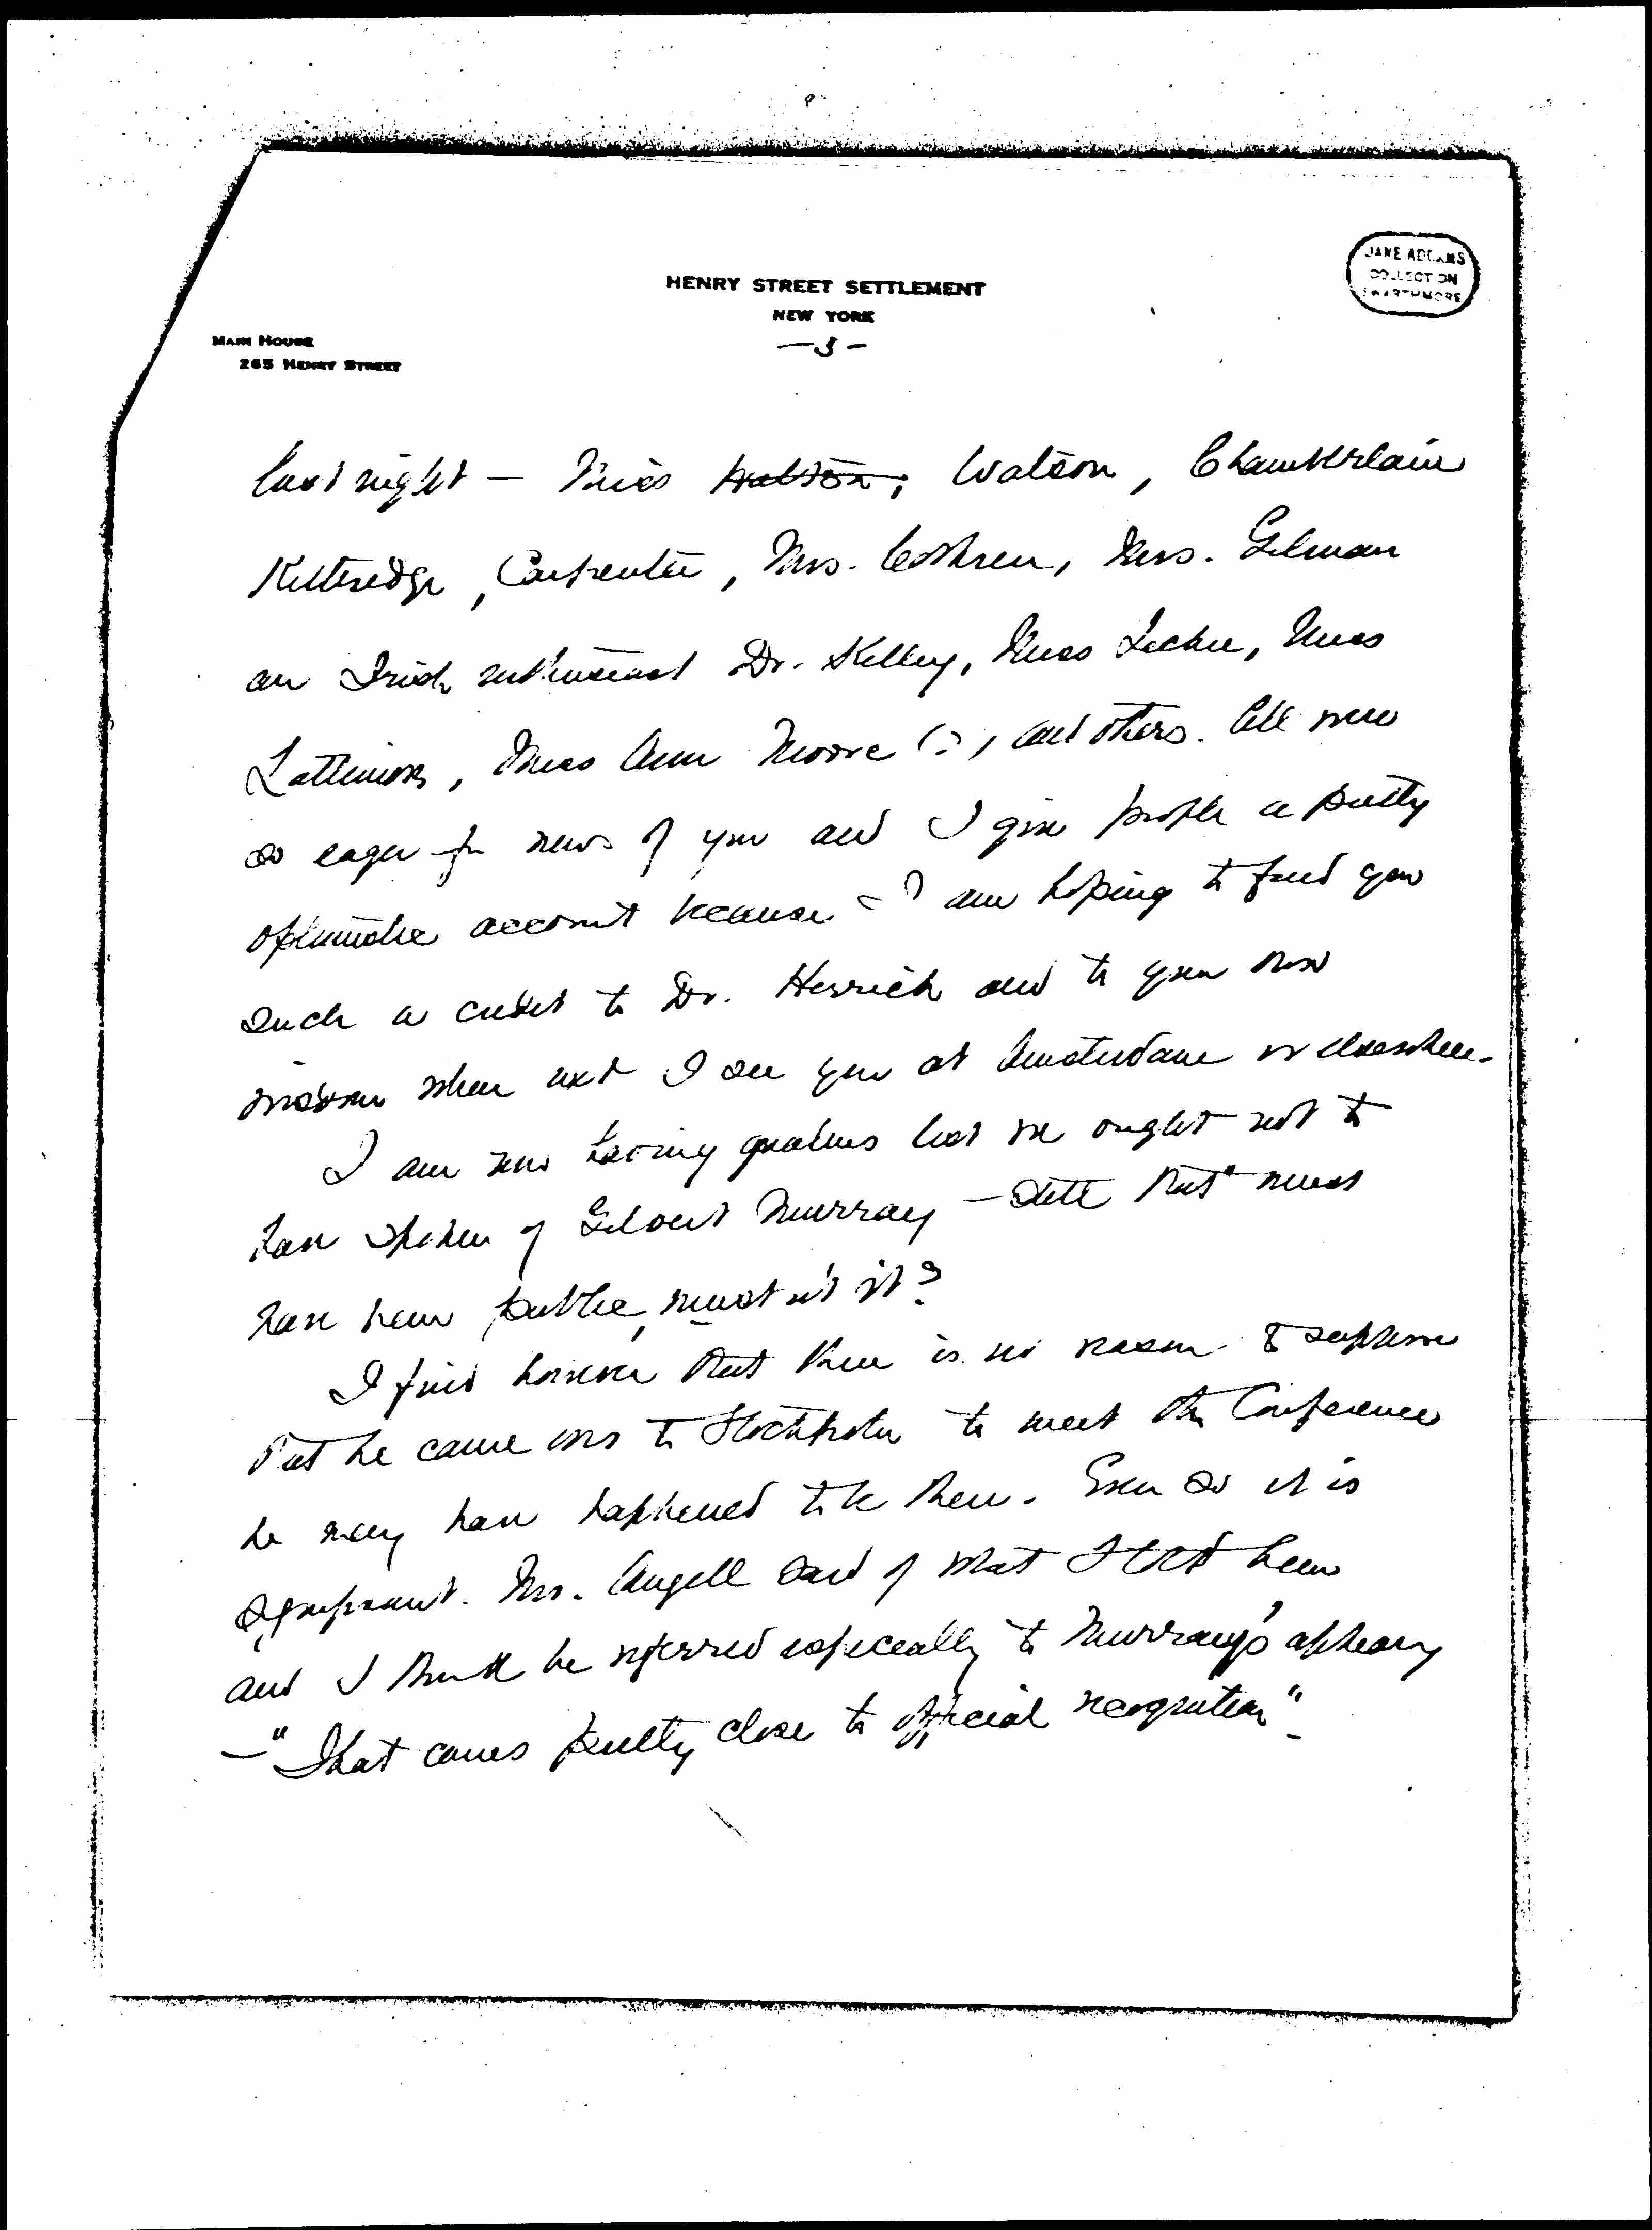 HENRY STREET SETTLEMENT
NEW YORK
JANE ADDAMS
COLLECTION
SWARTHMORE
MAIN HOUSE
265 HENRY STREET
last night — Miss Watson, Chamberlain
Kittredge, Carpenter, Mrs. Cothren, Mrs. Gilman
an Irish enthusiast Dr. Kelley, Miss Leckie, Miss
Lattimore, Miss Ann Moore (?) and others. All were
so eager for news of you and I give people a pretty
optimistic account because - I am hoping to find you
such a credit to Dr. Herrick and to your own
wisdom when next I see you at Amsterdam or elsewhere.
I am now having qualms lest we ought not to
have spoken of Gilbert Murray - still that must
have been public, mustn't it?
I find however that there is no reason to suppose
that he came over to Stockholm to meet the Conference
he may have happened to be there. Even so it is
significant. Mr. Angell said of what had been
and I think he referred especially to Murray's
— "That comes pretty close to official recognition" -